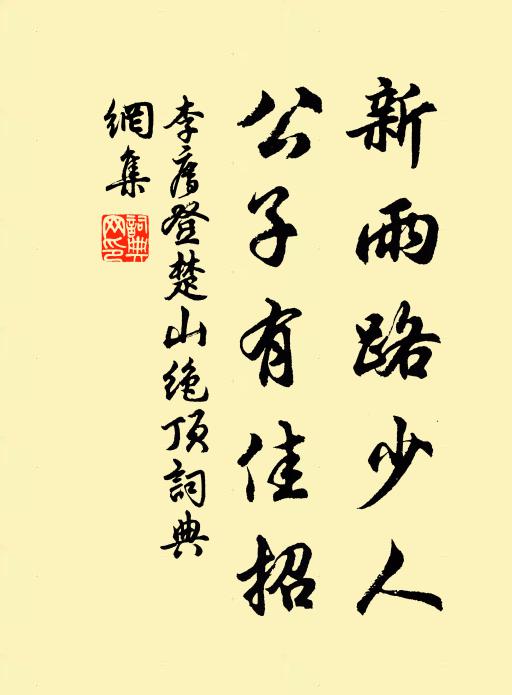 新雨路少人
公子有佳招
李廌登楚山絶頂詞典
網集
詞典網印